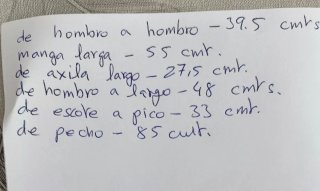 de hombro a hombro - 39.5 cmts
manga larga - 55 cmt.
de axila largo - 27,5 cmt.
de hombro a largo - 48 cmts.
de escote a pico - 33 cmt.
de pecho - 85 cmt.